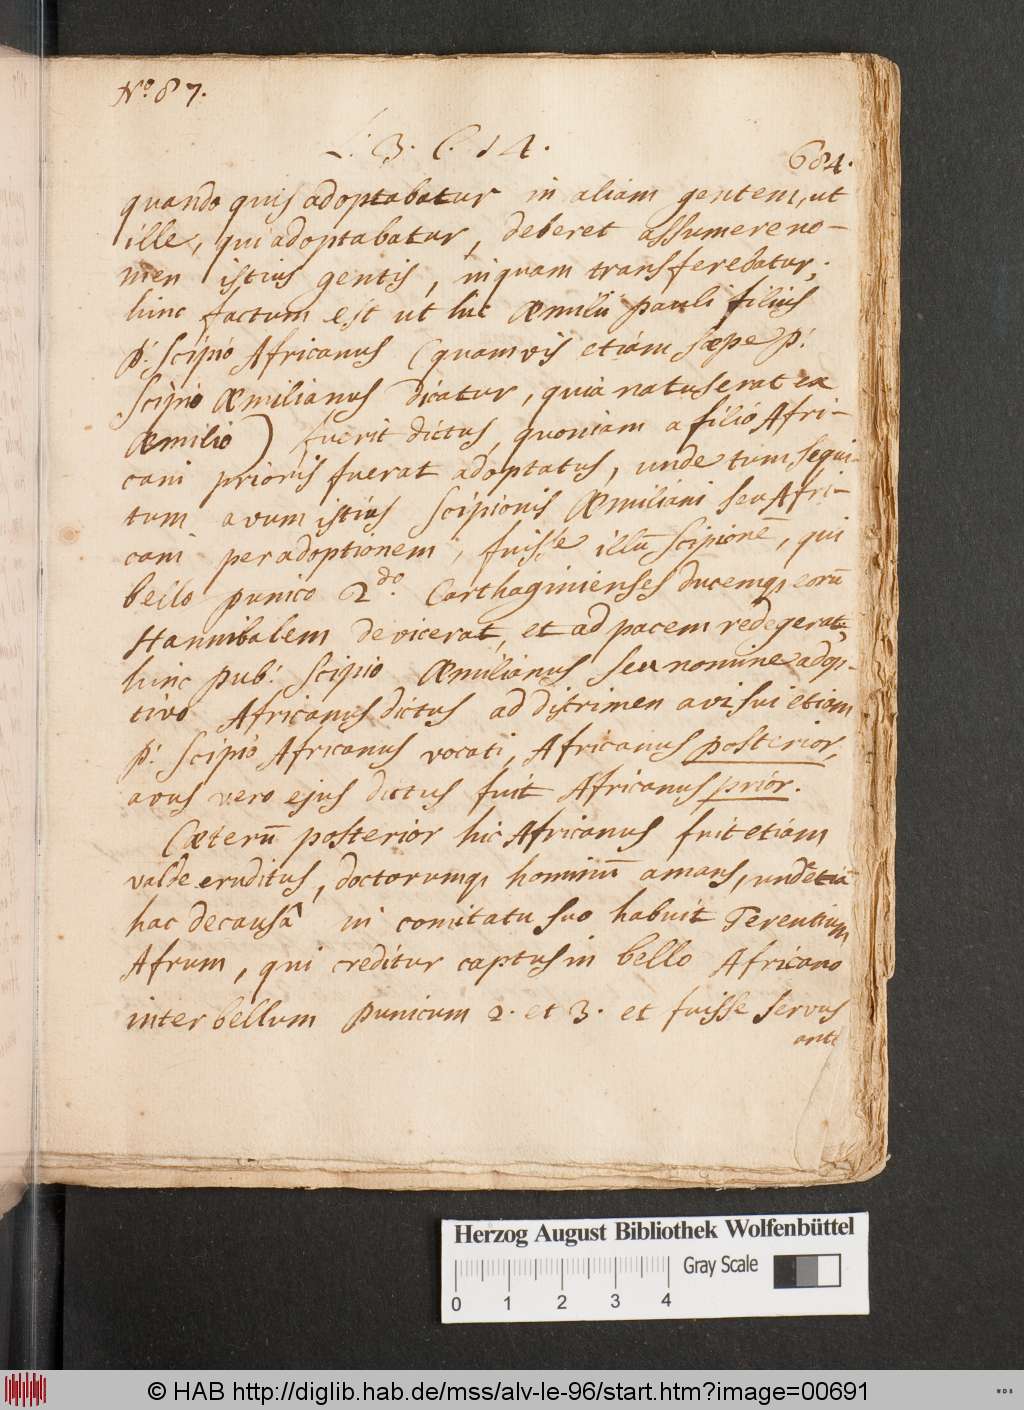 No. 87.
L. 3. C. 14.
684.
quando quis adoptabatur in aliam gentem, ut
ille, qui adoptabatur, deberet assumere no-
men istius gentis, in quam transferebatur,
hinc factum est ut hic Æmilii pauli filius
P. Scipio Africanus (quamvis etiam sæpe P.
Scipio Æmilianus dicatur, quia natus erat ex
Æmilio) fuerit dictus, quoniam a filio Afri-
cani prioris fuerat adoptatus, unde tum sequi-
tum avum istius Scipionis Æmiliani seu Afri-
cani per adoptionem, fuisse illū Scipionē, qui
bello punico 2do. Carthaginienses ducemq; eorū
Hannibalem devicerat, et ad pacem redegerat,
hinc Pub. Scipio Æmilianus seu nomine adop-
tivo Africanus dictus ad distrimen avi sui etiam
P. Scipio Africanus vocati, Africanus posterior,
avus vero ejus dictus fuit Africanus prior.
Cæterū posterior hic Africanus fuit etiam
valde eruditus, doctorumq; hominū amans, unde etiā
hac de causâ in comitatu suo habuit Terentium
Afrum, qui creditur captus in bello Africano
inter bellum punicum 2. et 3. et fuisse servus
ante
Herzog August Bibliothek Wolfenbüttel
Gray Scale
0 1 2 3 4
© HAB http://diglib.hab.de/mss/alv-le-96/start.htm?image=00691